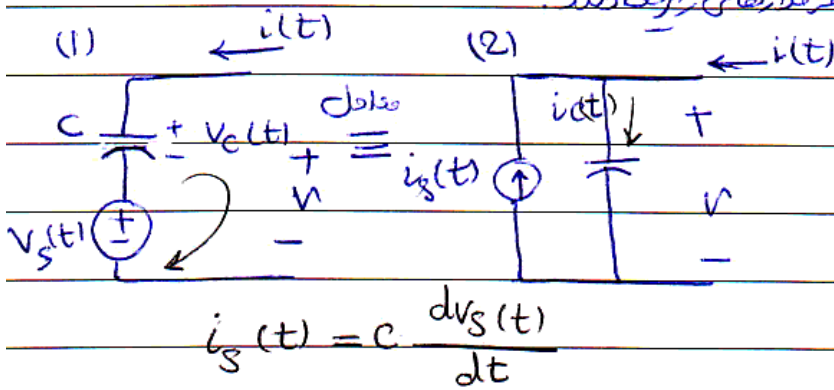 (1) i(t) (2) i(t)
C + − v_c(t) معادل ≡ i_c(t) +
+ v − i_s(t) v
v_s(t) + − −
i_s(t) = C dv_s(t)/dt